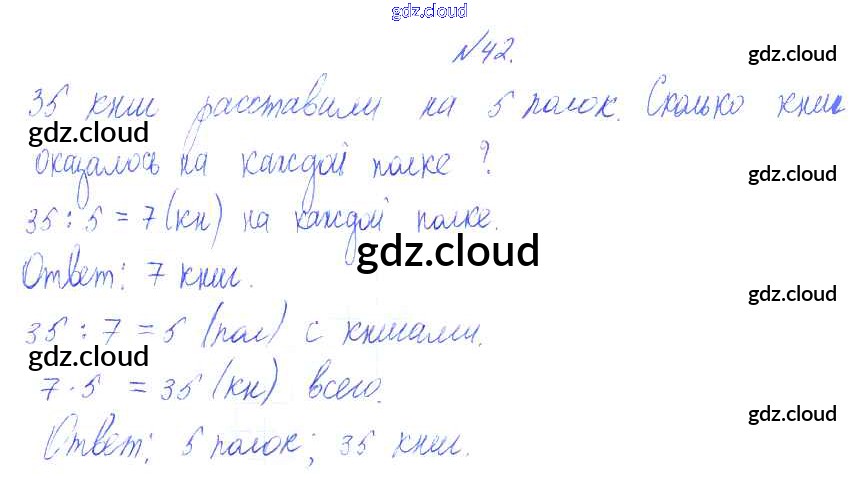 gdz.cloud
№42.
gdz.cloud
35 книг расставили на 5 полок. Сколько книг
gdz.cloud
оказалось на каждой полке?
gdz.cloud
35 : 5 = 7 (кн) на каждой полке.
gdz.cloud
Ответ: 7 книг.
gdz.cloud
35 : 7 = 5 (пол) с книгами.
gdz.cloud
7 · 5 = 35 (кн) всего.
gdz.cloud
Ответ: 5 полок; 35 книг.